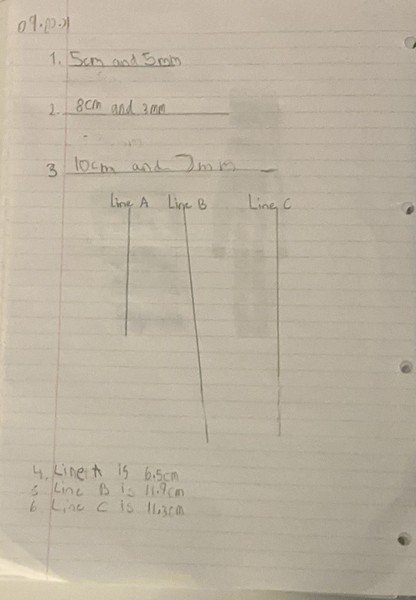 1. 5cm and 5mm
2. 8cm and 3mm
3 10cm and 7mm
Line A Line B Line C
4. Line A is 6.5cm
5 Line B is 11.9cm
6 Line C is 11.3cm